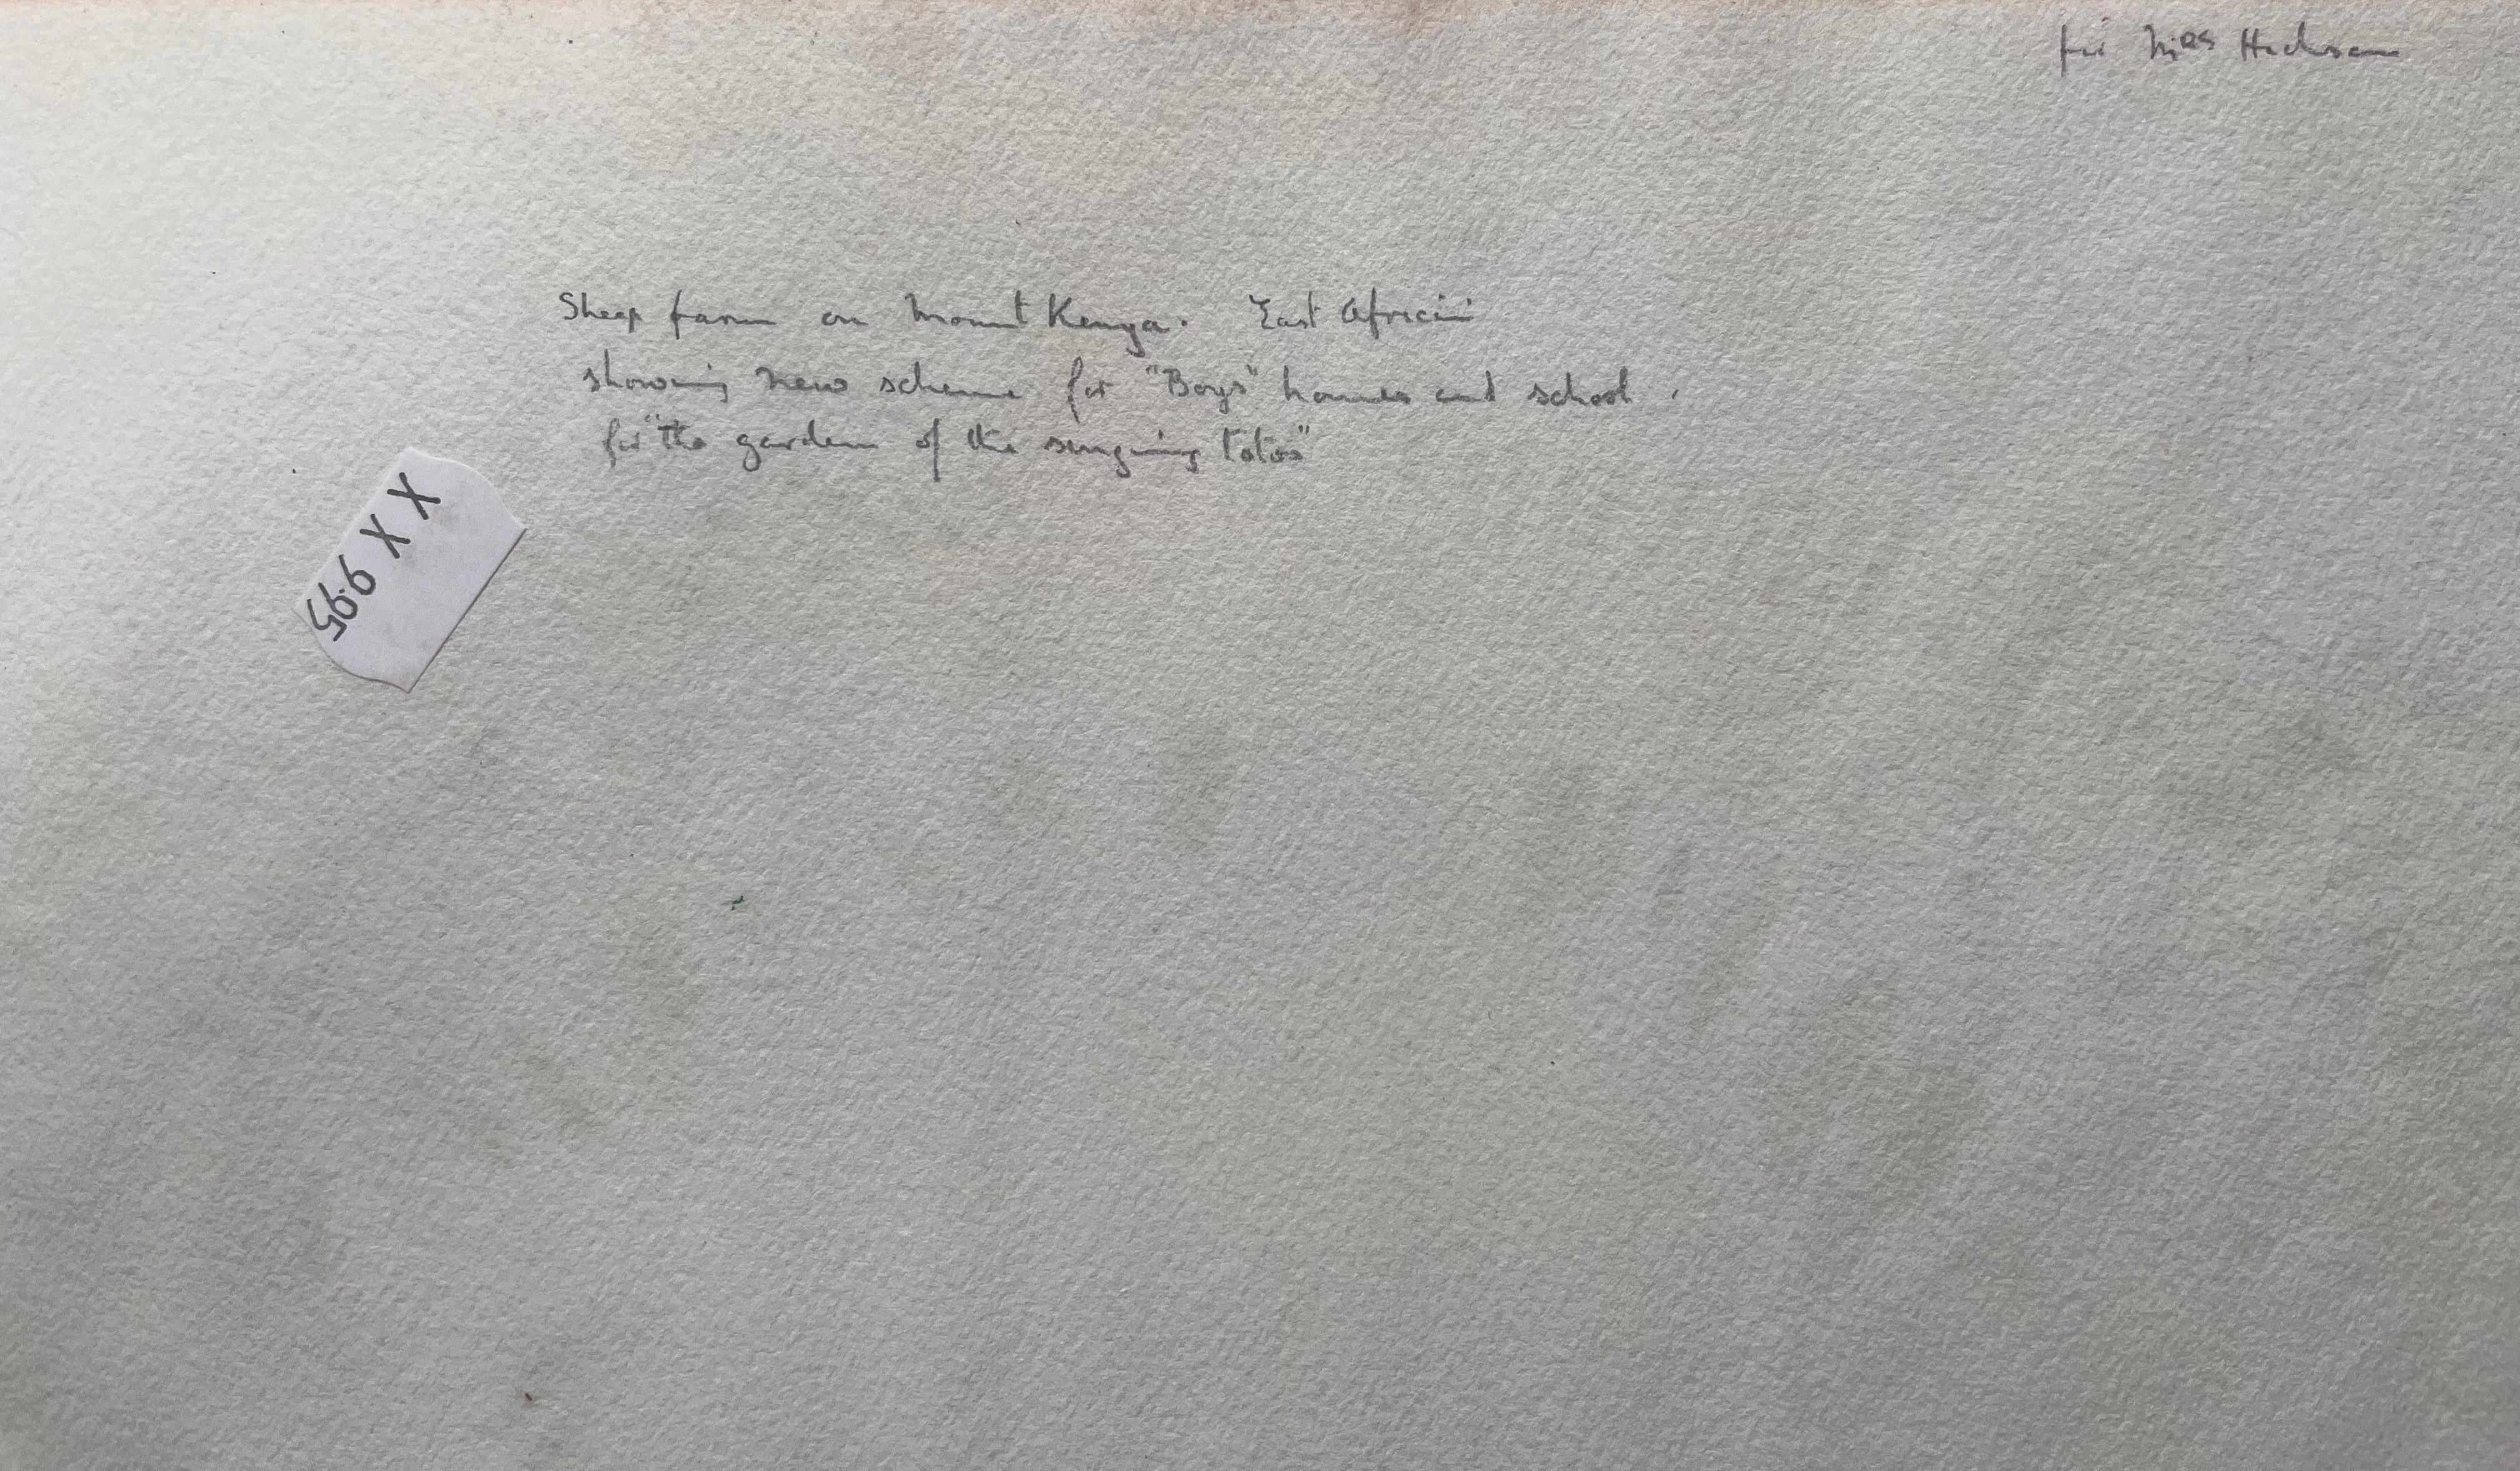 for Miss
Sheep farm on Mount Kenya. East Africa
showing new scheme for "Boys" homes and school.
for "the garden of the singing totos"
X X 9.95